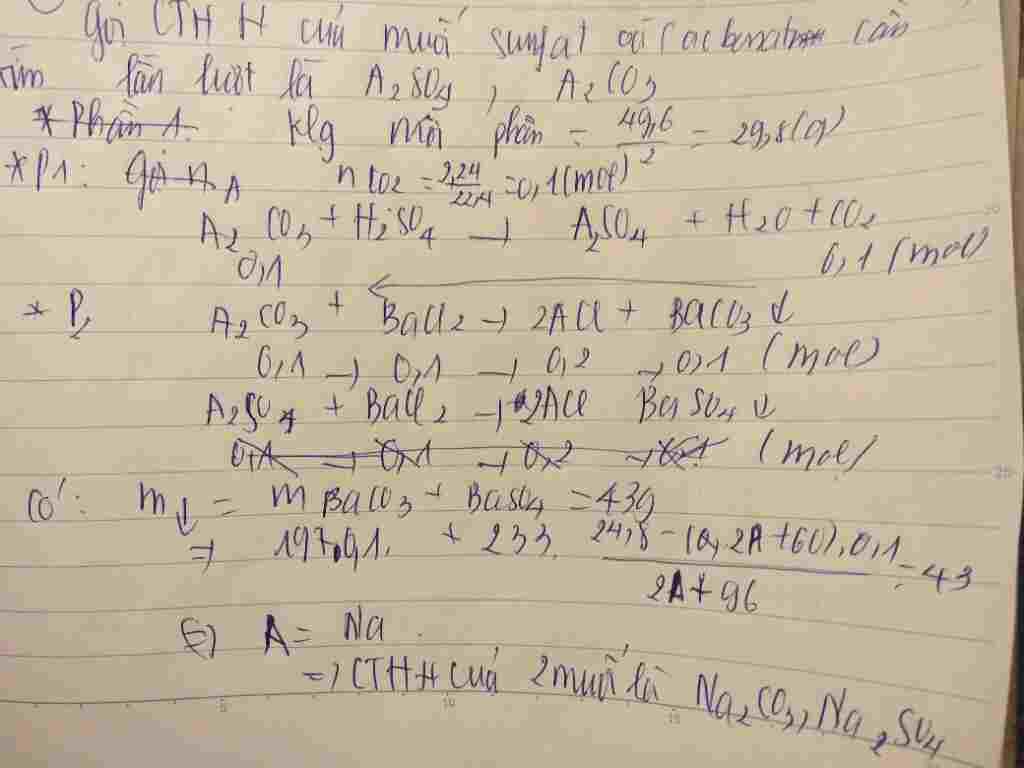 Gọi CTHH của muối sunfat và Cacbonat cần
tìm lần lượt là A₂SO₄, A₂CO₃
* Phần 1. Klg mỗi phần = 49,6/2 = 29,8(g)
* P1: Gọi n A nCO₂ = 2,24/22,4 = 0,1(mol)
A₂CO₃ + H₂SO₄ → A₂SO₄ + H₂O + CO₂
0,1 ← 0,1 (mol)
* P₂ A₂CO₃ + BaCl₂ → 2ACl + BaCO₃ ↓
0,1 → 0,1 → 0,2 → 0,1 (mol)
A₂SO₄ + BaCl₂ → 2ACl BaSO₄ ↓
0,1 → 0,1 → 0,2 → 0,1 (mol)
Có: m↓ = m BaCO₃ + BaSO₄ = 43g
⇒ 197.0,1. + 233. (24,8 - (2A+60).0,1)/(2A+96) = 43
⇔ A = Na.
⇒ CTHH của 2 muối là Na₂CO₃, Na₂SO₄